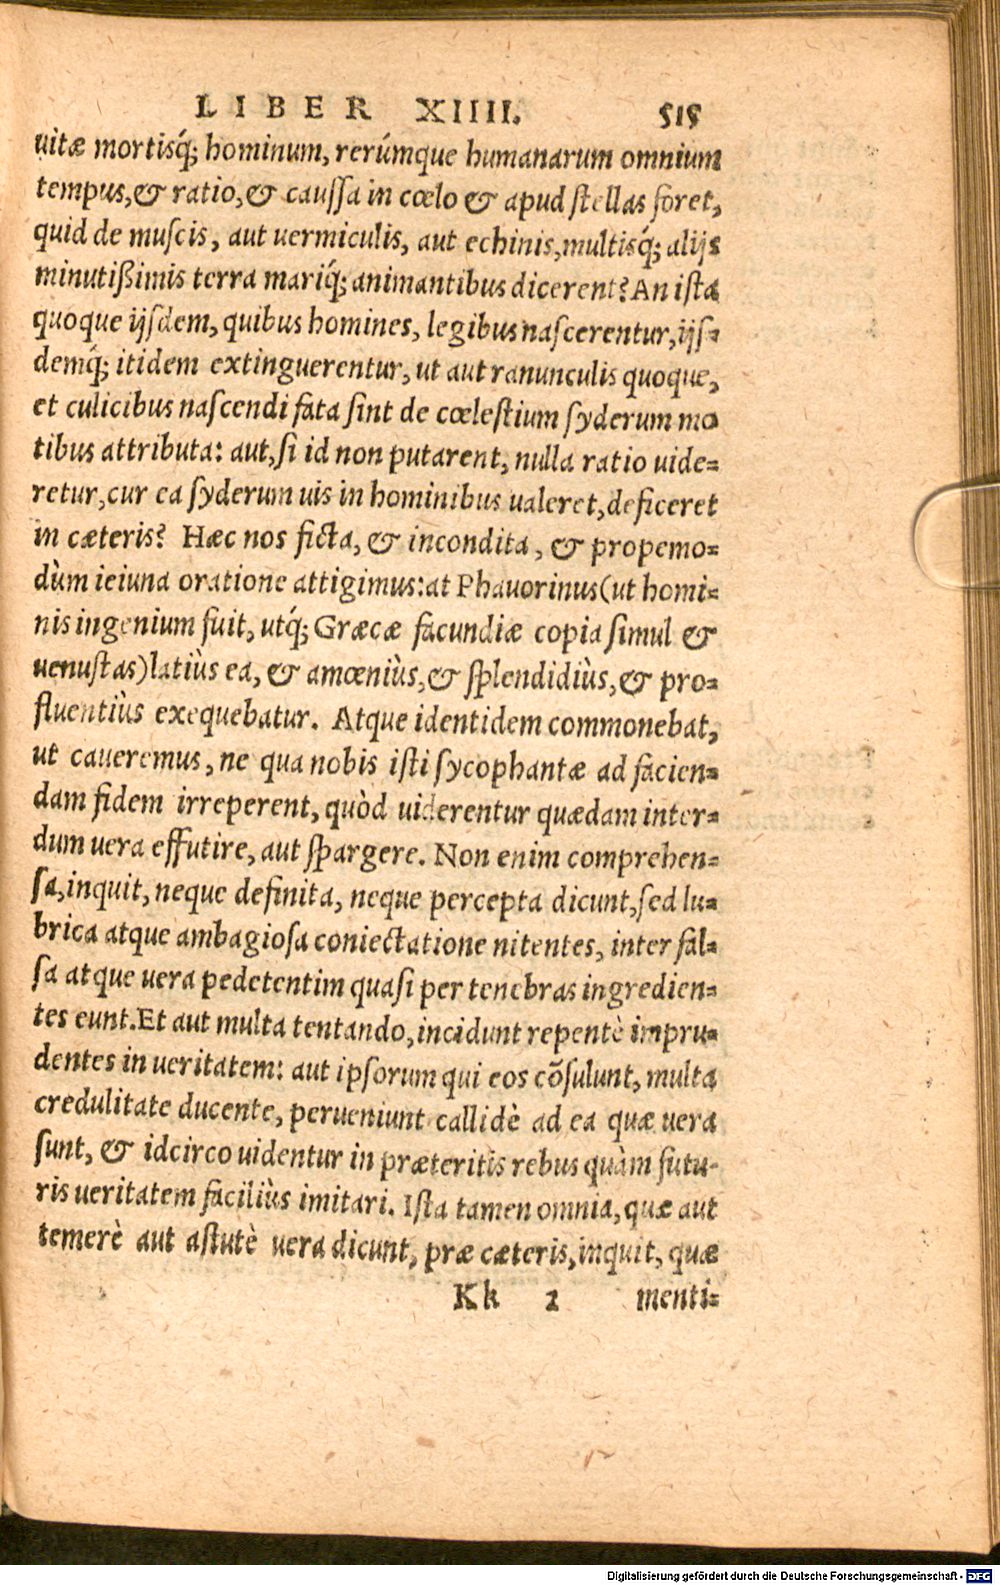 LIBER XIIII. 515
uitæ mortisq́; hominum, rerúmque humanarum omnium
tempus, & ratio, & caussa in cœlo & apud stellas foret,
quid de muscis, aut uermiculis, aut echinis, multisq́; alijs
minutißimis terra mariq́; animantibus dicerent? An ista
quoque ijsdem, quibus homines, legibus nascerentur, ijs-
demq́; itidem extinguerentur, ut aut ranunculis quoque,
et culicibus nascendi fata sint de cœlestium syderum mo
tibus attributa: aut, si id non putarent, nulla ratio uide-
retur, cur ea syderum uis in hominibus ualeret, deficeret
in cæteris? Hæc nos ficta, & incondita, & propemo-
dùm ieiuna oratione attigimus: at Phauorinus (ut homi-
nis ingenium fuit, utq́; Græcæ facundiæ copia simul &
uenustas) latiùs ea, & amœniùs, & splendidiùs, & pro-
fluentiùs exequebatur. Atque identidem commonebat,
ut caueremus, ne qua nobis isti sycophantæ ad facien-
dam fidem irreperent, quòd uiderentur quædam inter-
dum uera effutire, aut spargere. Non enim comprehen-
sa, inquit, neque definita, neque percepta dicunt, sed lu-
brica atque ambagiosa coniectatione nitentes, inter fal-
sa atque uera pedetentim quasi per tenebras ingredien-
tes eunt. Et aut multa tentando, incidunt repentè impru-
dentes in ueritatem: aut ipsorum qui eos cõsulunt, multa
credulitate ducente, perueniunt callidè ad ea quæ uera
sunt, & idcirco uidentur in præteritis rebus quàm futu-
ris ueritatem faciliùs imitari. Ista tamen omnia, quæ aut
temerè aut astutè uera dicunt, præ cæteris, inquit, quæ
Kk 2 menti-
Digitalisierung gefördert durch die Deutsche Forschungsgemeinschaft - DFG